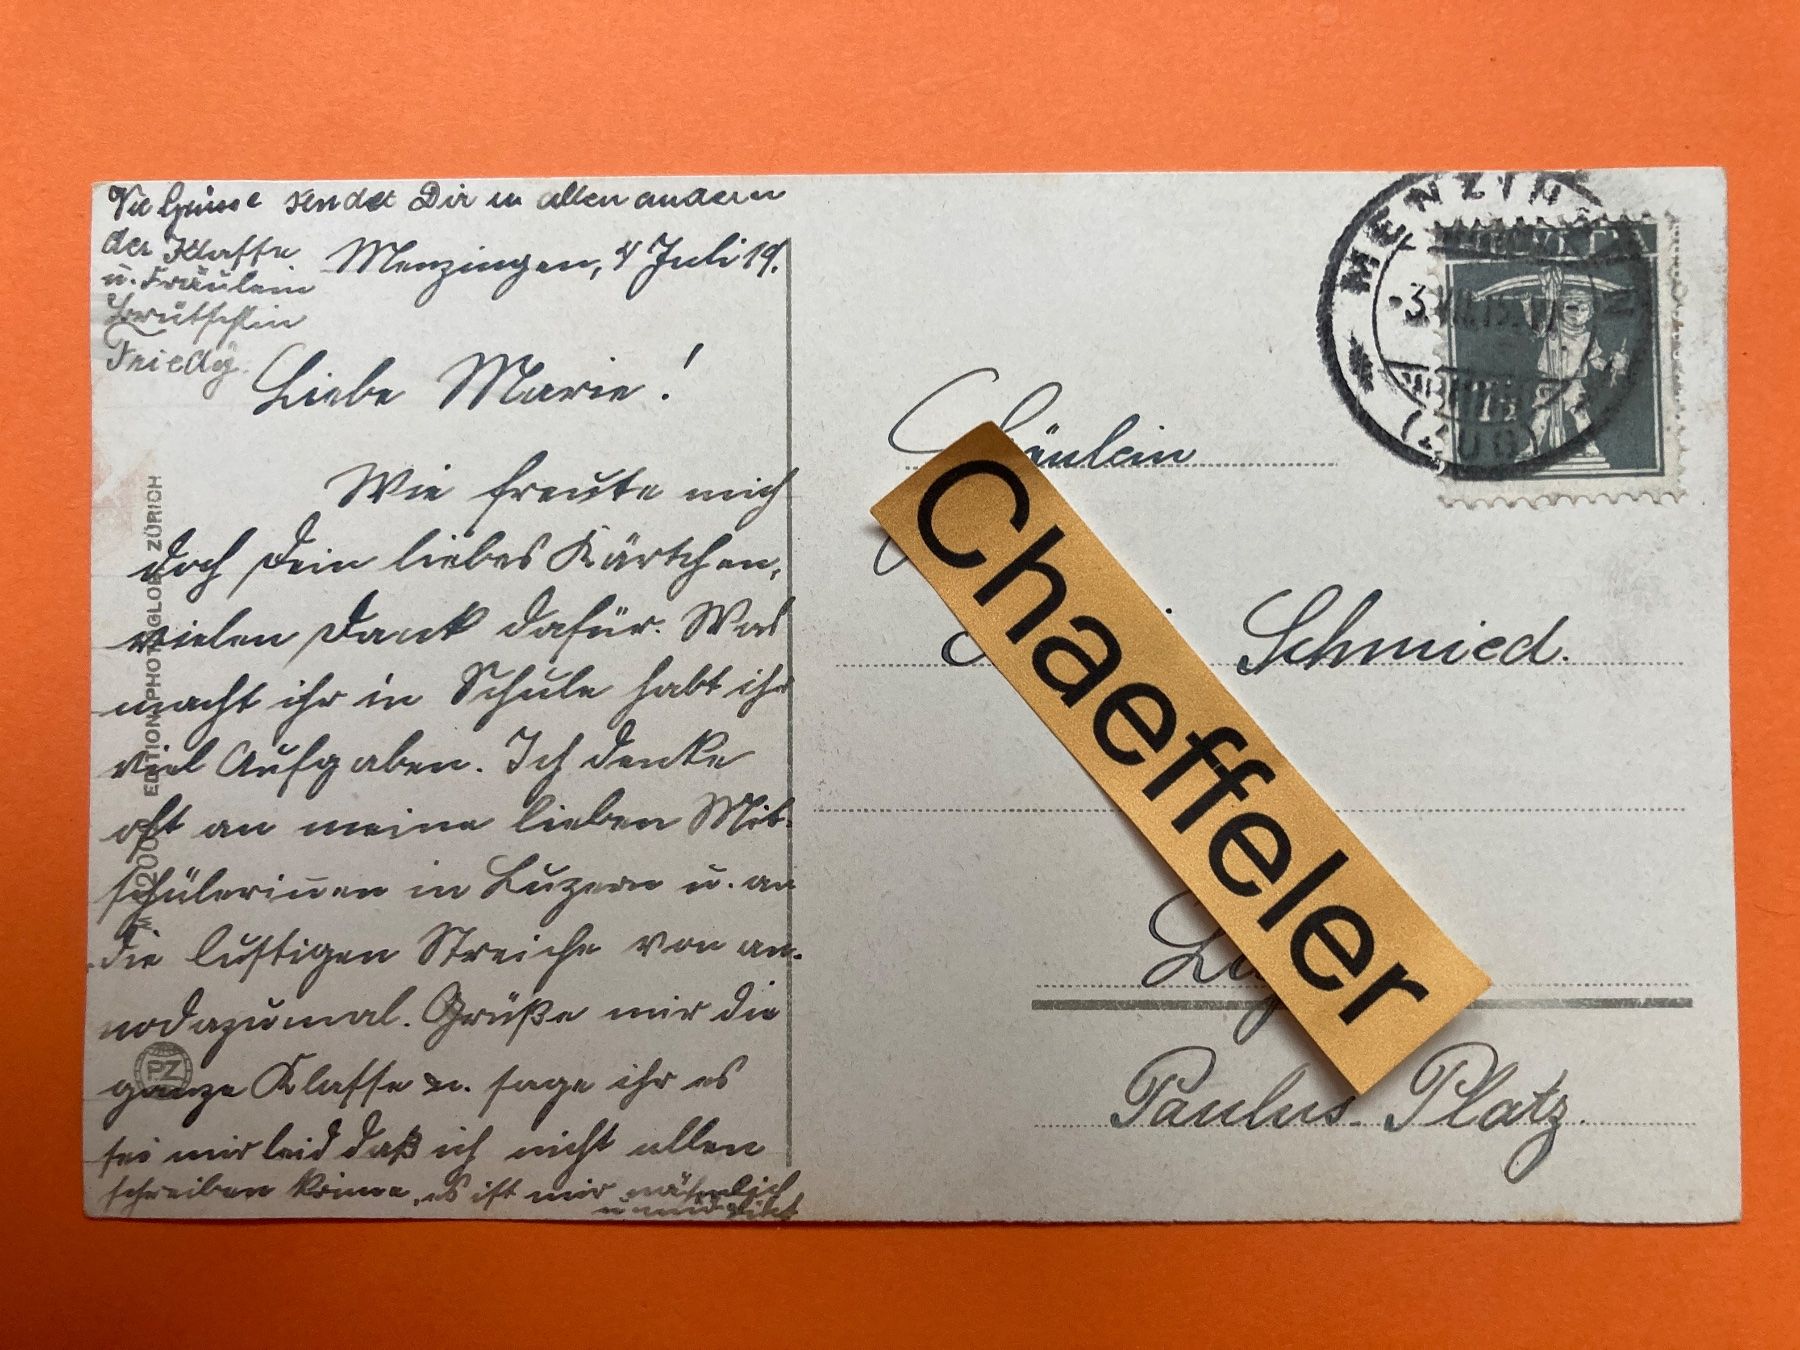 Viele Grüsse sendet Dir u. allen andern
der Klasse
u. Fräulein
Friedy.
Menzingen, 4 Juli 19.
Liebe Marie!
Wie freute mich
doch Dein liebes Kärtchen,
vielen Dank dafür. Was
macht ihr in Schule habt ihr
viel Aufgaben. Ich denke
oft an meine lieben Mit-
schülerinnen in Luzern u. an
die lustigen Streiche von an-
nodazumal. Grüße mir die
ganze Klasse u. sage ihr es
sei mir leid daß ich nicht allen
schreiben könne, es ist mir nämlich
EDITION PHOTOGLOB ZÜRICH
PZ
MENZIN
(ZUG)
HELVETIA
Fräulein
Schmied.
Paulus-Platz.
Chaeffeler